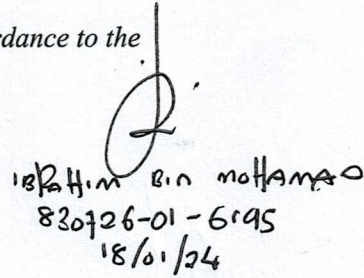 rdance to the
IBRAHIM BIN MOHAMAD
830726-01-6195
18/01/24